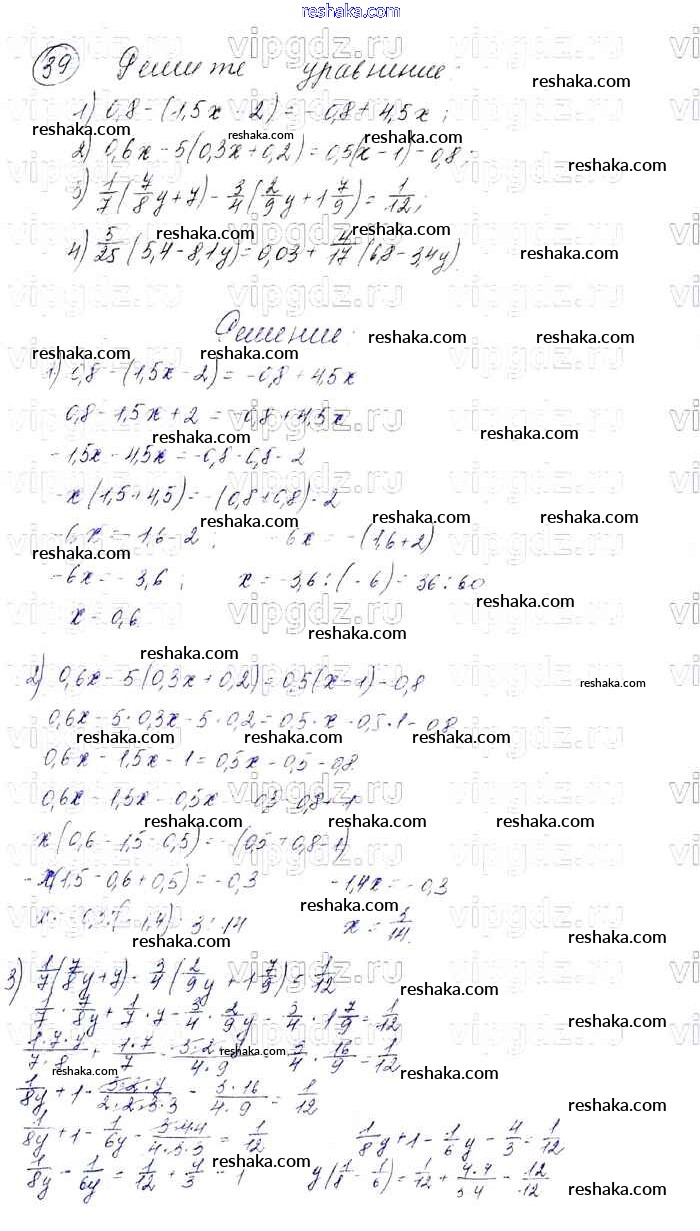 reshaka.com
39 Решите уравнение:
1) 0,8 - (1,5x - 2) = -0,8 + 4,5x;
2) 0,6x - 5(0,3x + 0,2) = 0,5(x - 1) - 0,8;
3) 1/7 (7/8 y + 7) - 3/4 (2/9 y + 1 7/9) = 1/12;
4) 5/25 (5,4 - 8,1y) = 0,03 + 4/17 (6,8 - 3,4y)
Решение:
1) 0,8 - (1,5x - 2) = -0,8 + 4,5x
0,8 - 1,5x + 2 = -0,8 + 4,5x
-1,5x - 4,5x = -0,8 - 0,8 - 2
-x(1,5 + 4,5) = -(0,8 + 0,8) - 2
-6x = -1,6 - 2; -6x = -(1,6 + 2)
-6x = -3,6; x = -3,6 : (-6) = 36 : 60
x = 0,6
2) 0,6x - 5(0,3x + 0,2) = 0,5(x - 1) - 0,8
0,6x - 5 · 0,3x - 5 · 0,2 = 0,5 · x - 0,5 · 1 - 0,8
0,6x - 1,5x - 1 = 0,5x - 0,5 - 0,8
0,6x - 1,5x - 0,5x = -0,5 - 0,8 + 1
x(0,6 - 1,5 - 0,5) = -(0,5 + 0,8 - 1)
-x(1,5 - 0,6 + 0,5) = -0,3 -1,4x = -0,3
x = -0,3 : (-1,4) = 3 : 14 x = 3/14.
3) 1/7 (7/8 y + 7) - 3/4 (2/9 y + 1 7/9) = 1/12
1/7 · 7/8y + 1/7 · 7 - 3/4 · 2/9y - 3/4 · 1 7/9 = 1/12
1·7·y/7·8 + 1·7/7 - 3·2·y/4·9 - 3/4 · 16/9 = 1/12
1/8y + 1 - 3·2·y/2·2·3·3 - 3·16/4·9 = 1/12
1/8y + 1 - 1/6y - 3·4·4/4·3·3 = 1/12 1/8 y + 1 - 1/6 y - 4/3 = 1/12
1/8y - 1/6y = 1/12 + 4/3 - 1 y(1/8 - 1/6) = 1/12 + 4·4/3·4 - 12/12